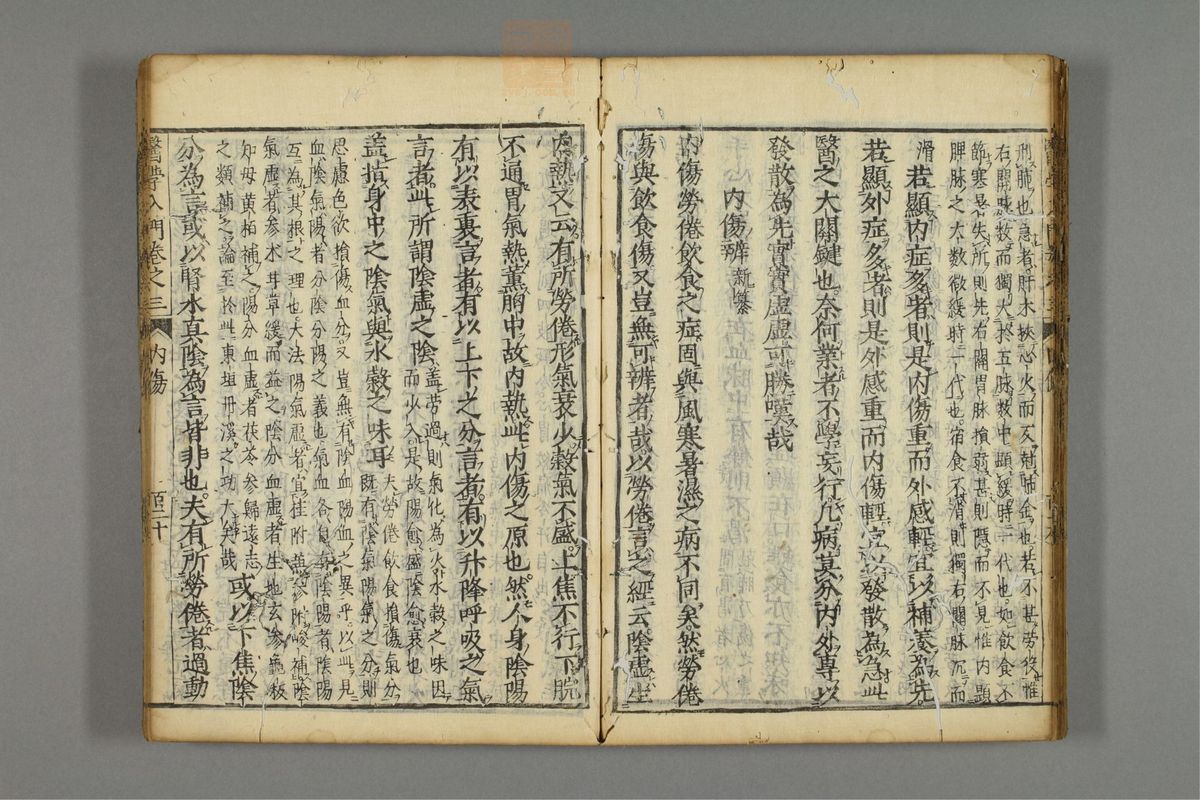 刑肺也急者肝木挾心火而反刑肺金也若不甚勞役惟
右關脾脉數而獨大於五脉數中顯緩時一代也如飲食不
節寒温失所則先右關胃脉損弱甚則隱而不見惟内顯
脾脉之大數微緩時一代也宿食不消則獨右關脉沉而
滑 若顯内症多者則是内傷重而外感輕宜以補養為先
若顯外症多者則是外感重而内傷輕宜以發散為急此
醫之大關鍵也奈何業者不學妄行凡病莫分内外專以
發散為先實實虚虚可勝嘆哉
内傷辨 新纂
内傷勞倦飲食之症固與風寒暑濕之病不同矣然勞倦
傷與飲食傷又豈無可辨者哉以勞倦言之經云陰虚生
内熱又云有所勞倦形氣衰少穀氣不盛上焦不行下脘
不通胃氣熱薰胸中故内熱此内傷之原也然人身陰陽
有以表裏言者有以上下之分言者有以升降呼吸之氣
言者此所謂陰虚之陰 蓋勞過則氣化為火水穀之味因
而少入是故陽愈盛陰愈衰也
盖指身中之陰氣與水穀之味耳 夫勞倦飲食損傷氣分
既有陰氣陽氣之分則
思慮色欲損傷血分又豈無有陰血陽血之異乎以此見
血陰氣陽者分陰分陽之義也氣血各自有陰陽者陰陽
互為其根之理也大法陽氣虚者宜桂附兼參暖補陰
氣虚者參朮甘草緩而益之陰分血虚者生地玄參龜板
知母黄柏補之陽分血虚者茯苓參歸遠志
之類補之論至於此東垣丹溪之功大矣哉 或以下焦陰
分為言或以腎水真陰為言皆非也夫有所勞倦者過動
醫學入門卷之三 内傷 百二十